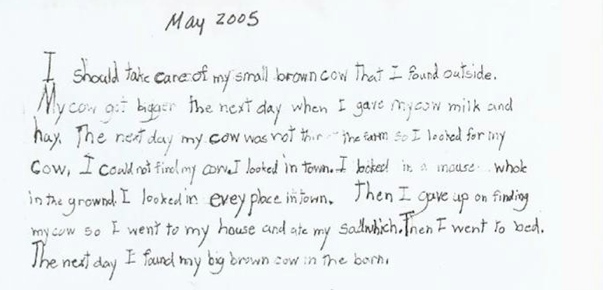 May 2005
I should take care of my small brown cow that I found outside.
My cow got bigger the next day when I gave my cow milk and
hay. The next day my cow was not the farm so I looked for my
cow, I could not find my cow. I looked in town. I looked in a mouse whole
in the grownd. I looked in evey place in town. Then I gave up on finding
my cow so I went to my house and ate my sadwhich. Then I went to bed.
The next day I found my big brown cow in the born.